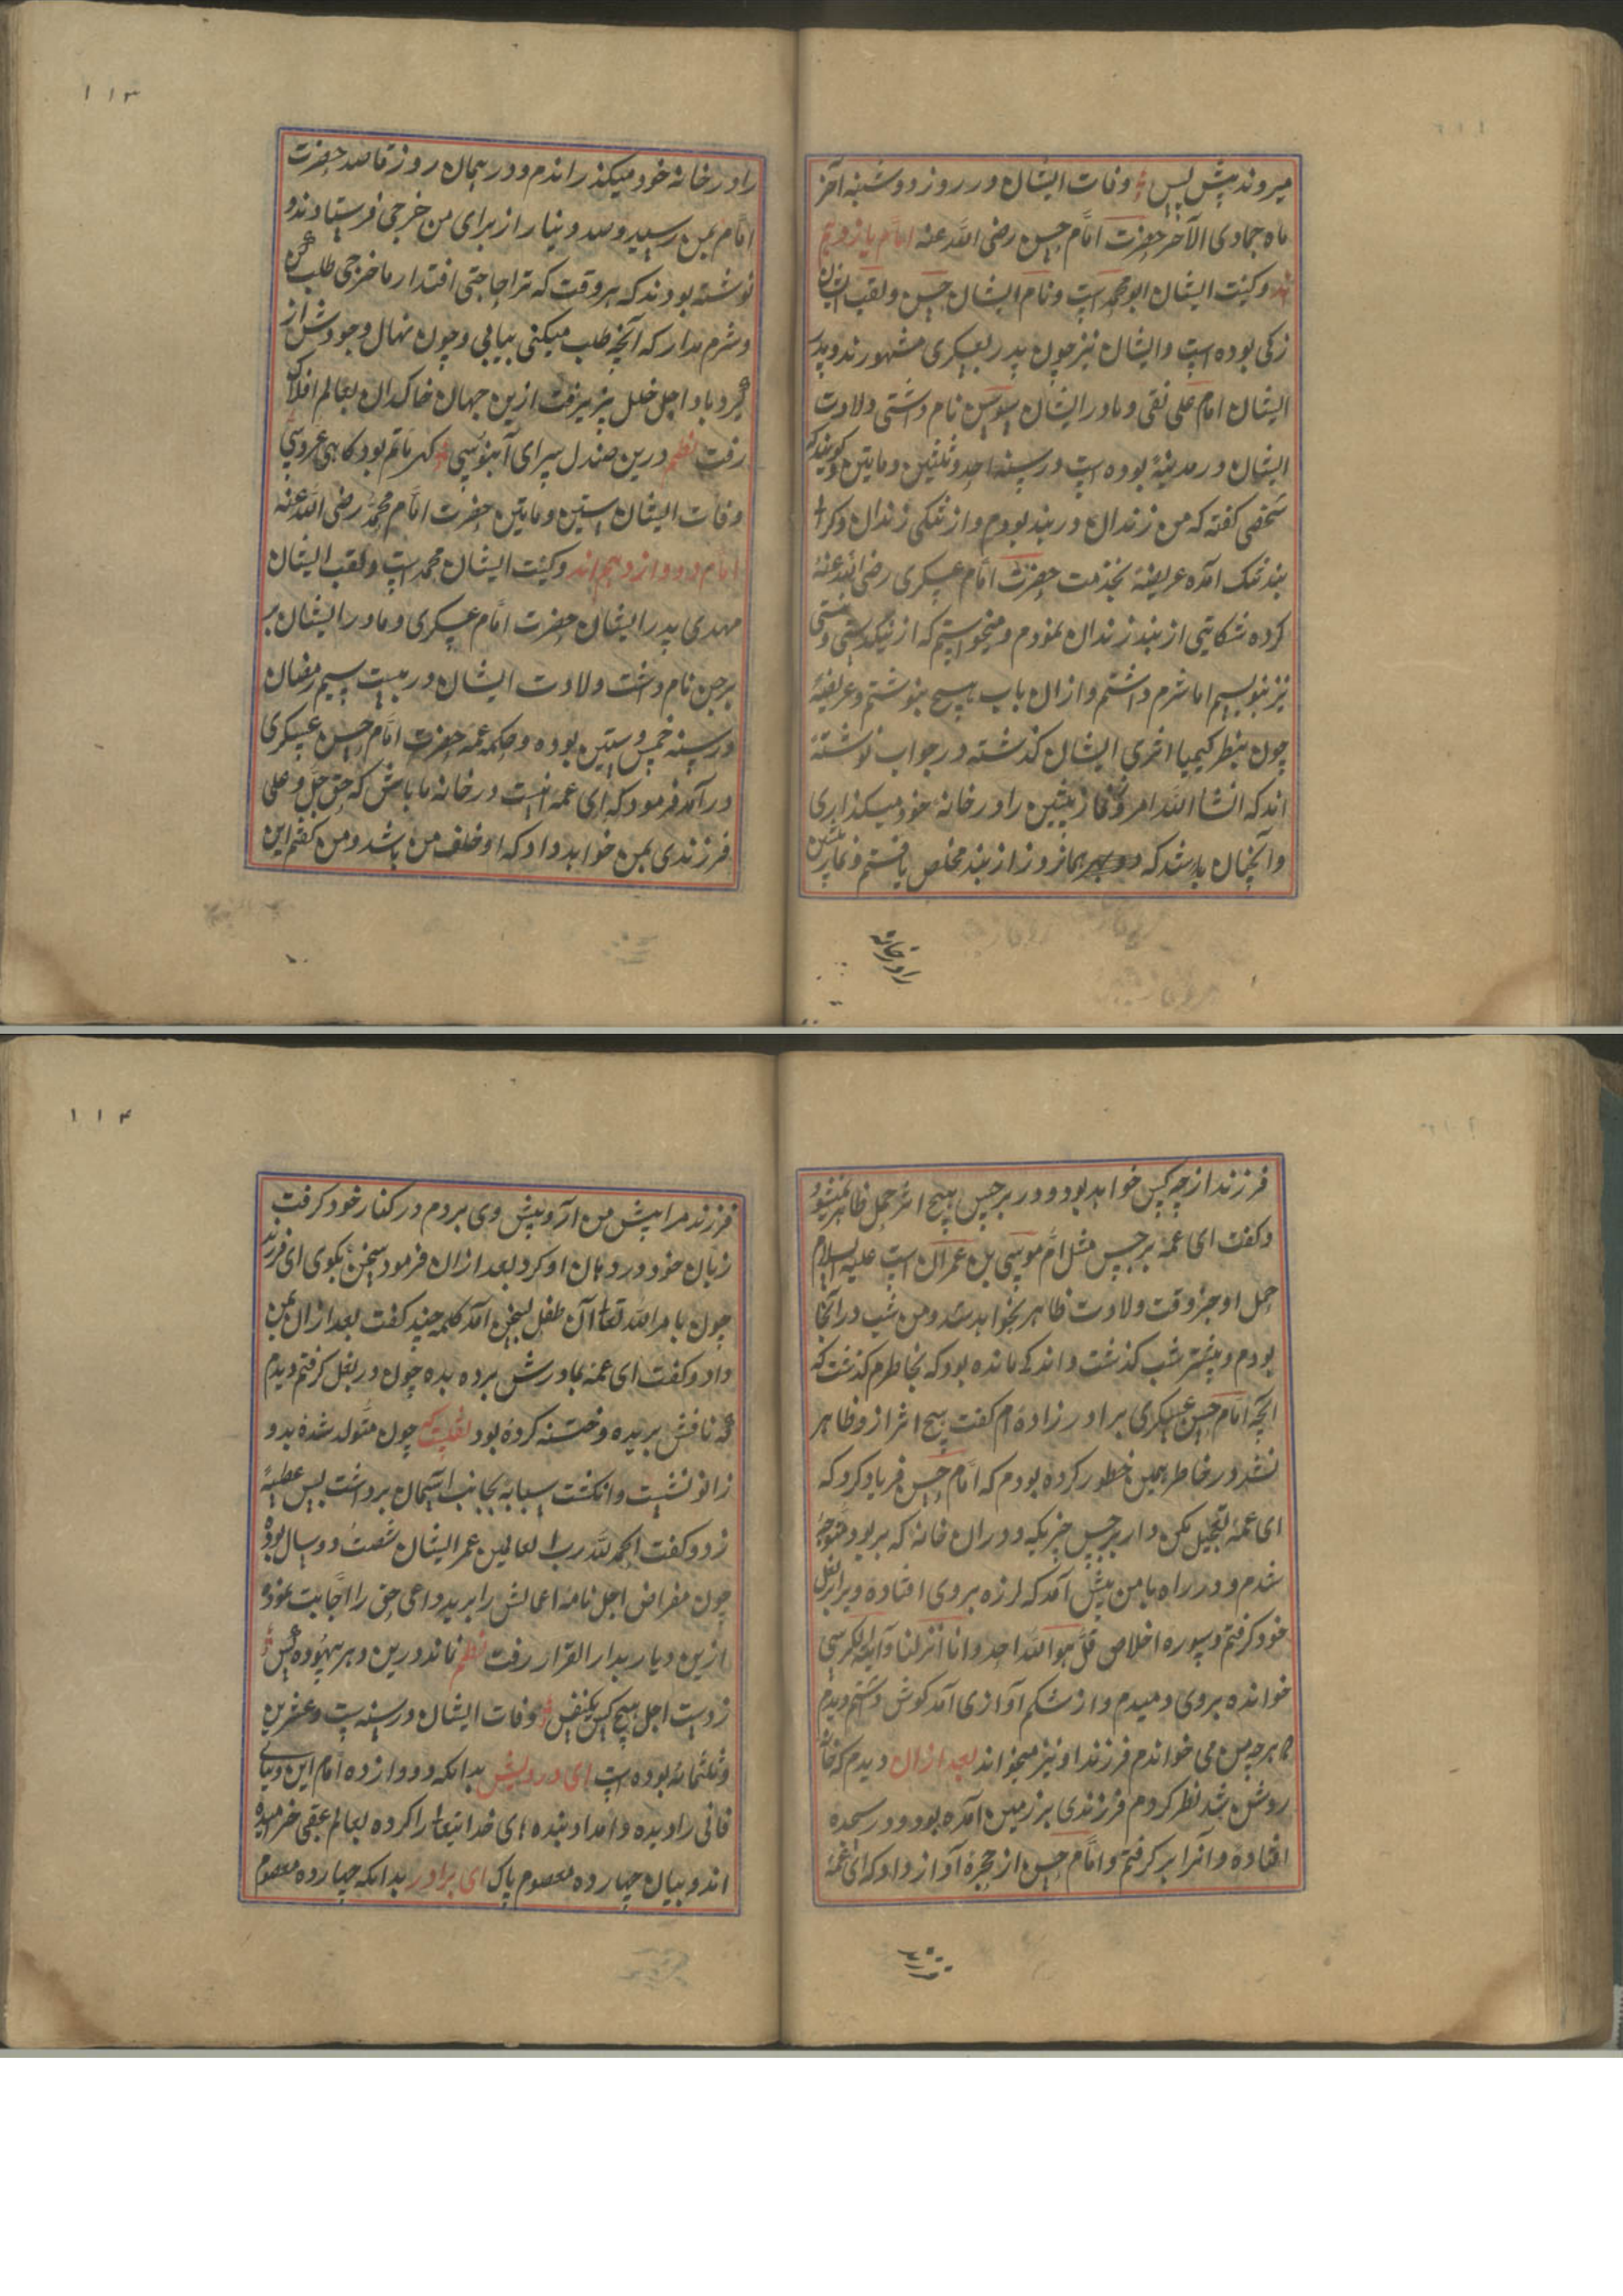 میروند پیش پس وفات ایشان در روز دوشنبه آخر
ماه جمادی الآخر حضرت امام حسن رضی الله عنه امام یازدهم
اند وکنیت ایشان ابو محمد است ونام ایشان حسن ولقب ایشان
زکی بوده است وایشان نیز چون پدر بعسکری مشهورند وپدر
ایشان امام علی نقی ومادر ایشان سوسن نام داشتی ولادت
ایشان در مدینهٔ بوده است در سنه احد وثلثین ومایتین وگویند که
شخصی گفته که من زندان در بند بودم واز تنگی زندان وگرانی
بند تنگ آمده عریضهٔ بخدمت حضرت امام عسکری رضی الله عنهٔ
کرده شکایتی از بند زندان نمودم ومیخواستم که از تنگدستی
نیز بنویسم اما شرم داشتم وازان باب هیچ ننوشتم وعریضهٔ
چون بنظر کیمیا اثری ایشان گذشته در جواب نوشتهٔ
اند که انشا الله امروز نماز پیشین را در خانهٔ خود میگذاری
وآنچنان باشد که همانروز از بند مخلص یافتم ونماز پیشین
را در خانه
۱۱۳
را در خانه خود میگذراندم ودر همان روز قاصد حضرت
امام بمن رسید وصد دینار از برای من خرجی فرستادند و
نوشته بودند که هر وقت که ترا حاجتی افتد از ما خرجی طلب کن
وشرم مدار که آنچه طلب میکنی بیابی وچون نهال وجودش از
گردباد اجل خلل پزیرفت ازین جهان خاکدان بعالم افلاک
رفت نظم درین صندل سرای آبنوسی گهر ماتم بود گاهی عروسی
وفات ایشان ستین ومایتین حضرت امام محمد رضی الله عنه
امام دوازدهم اند وکنیت ایشان محمد است ولقب ایشان
مهدی پدر ایشان حضرت امام عسکری ومادر ایشان
نرجس نام داشت ولادت ایشان در بیست سیم رمضان
در سنه خمس وستین بوده وحکیمه عمه حضرت امام حسن عسکری
در آمد فرمود که ای عمه امشب در خانه ما باش که حق جل وعلی
فرزندی بمن خواهد داد که او خلف من باشد ومن گفتم این
فرزند از چه کس خواهد بود ودر برجس هیچ اثر حمل ظاهر نمیشود
وگفت ای عمه برجس مثل ام موسی بن عمران است علیه السلام
حمل او جز وقت ولادت ظاهر نخواهد شد ومن شب در آنجا
بودم وبیشتر شب گذشت واندکی مانده بود که بخاطرم گذشت که
آنچه امام حسن عسکری برادر زاده ام گفت هیچ اثر ازو ظاهر
نشد در خاطر همین خطور کرده بودم که امام حسن فریاد کرد که
ای عمهٔ تعجیل مکن ودران خانه که بر بود متوجهٔ
شدم ودر راه با من پیش آمد که لرزه بروی افتاده ویرا در بغل
خود گرفتم وسوره اخلاص قل هو الله احد وانا انزلنا وآیه الکرسی
خوانده بروی دمیدم واز شکم آوازی آمد گوش داشتم دیدم
که هر چه من می خواندم فرزند او نیز میخواند بعد ازان دیدم که خانهٔ
روشن شد نظر کردم فرزندی بر زمین آمده بود ودر سجده
افتاده وآنرا بر گرفتم وامام حسن از حجرهٔ آواز داد که ای عمهٔ
۱۱۴
فرزند مرا پیش من آر وپیش وی بردم در کنار خود گرفت
زبان خود در دهان او کرد بعد ازان فرمود سخن بگوی ای فرزند
چون بامر الله تعالی آن طفل بسخن آمد کلمه چند گفت بعد ازان بمن
داد وگفت ای عمه بمادرش برده بده چون در بغل گرفتم دیدم
که نافش بریده وختنه کرده بود نقلست که چون متولد شده بدو
زانو نشست وانگشت سبابه بجانب آسمان برداشت پس عطسهٔ
زد وگفت الحمد لله رب العالمین عمر ایشان شصت ودو سال بوده
چون مقراض اجل نامهٔ اعمالش را برید داعی حق را اجابت نموده
ازین دیار بدار القرار رفت نظم نماند درین دهر بیهوده کس
ز دست اجل هیچ کس یکنفس وفات ایشان در سنه ست وعشرین
وثلثمائه بوده است ای درویش بدانکه دوازده امام این دنیای
فانی را دیده وامداد بنده های خدایتعالی را کرده بعالم عقبی خرامیده
اند وبیان چهارده معصوم پاک ای برادر بدانکه چهارده معصوم